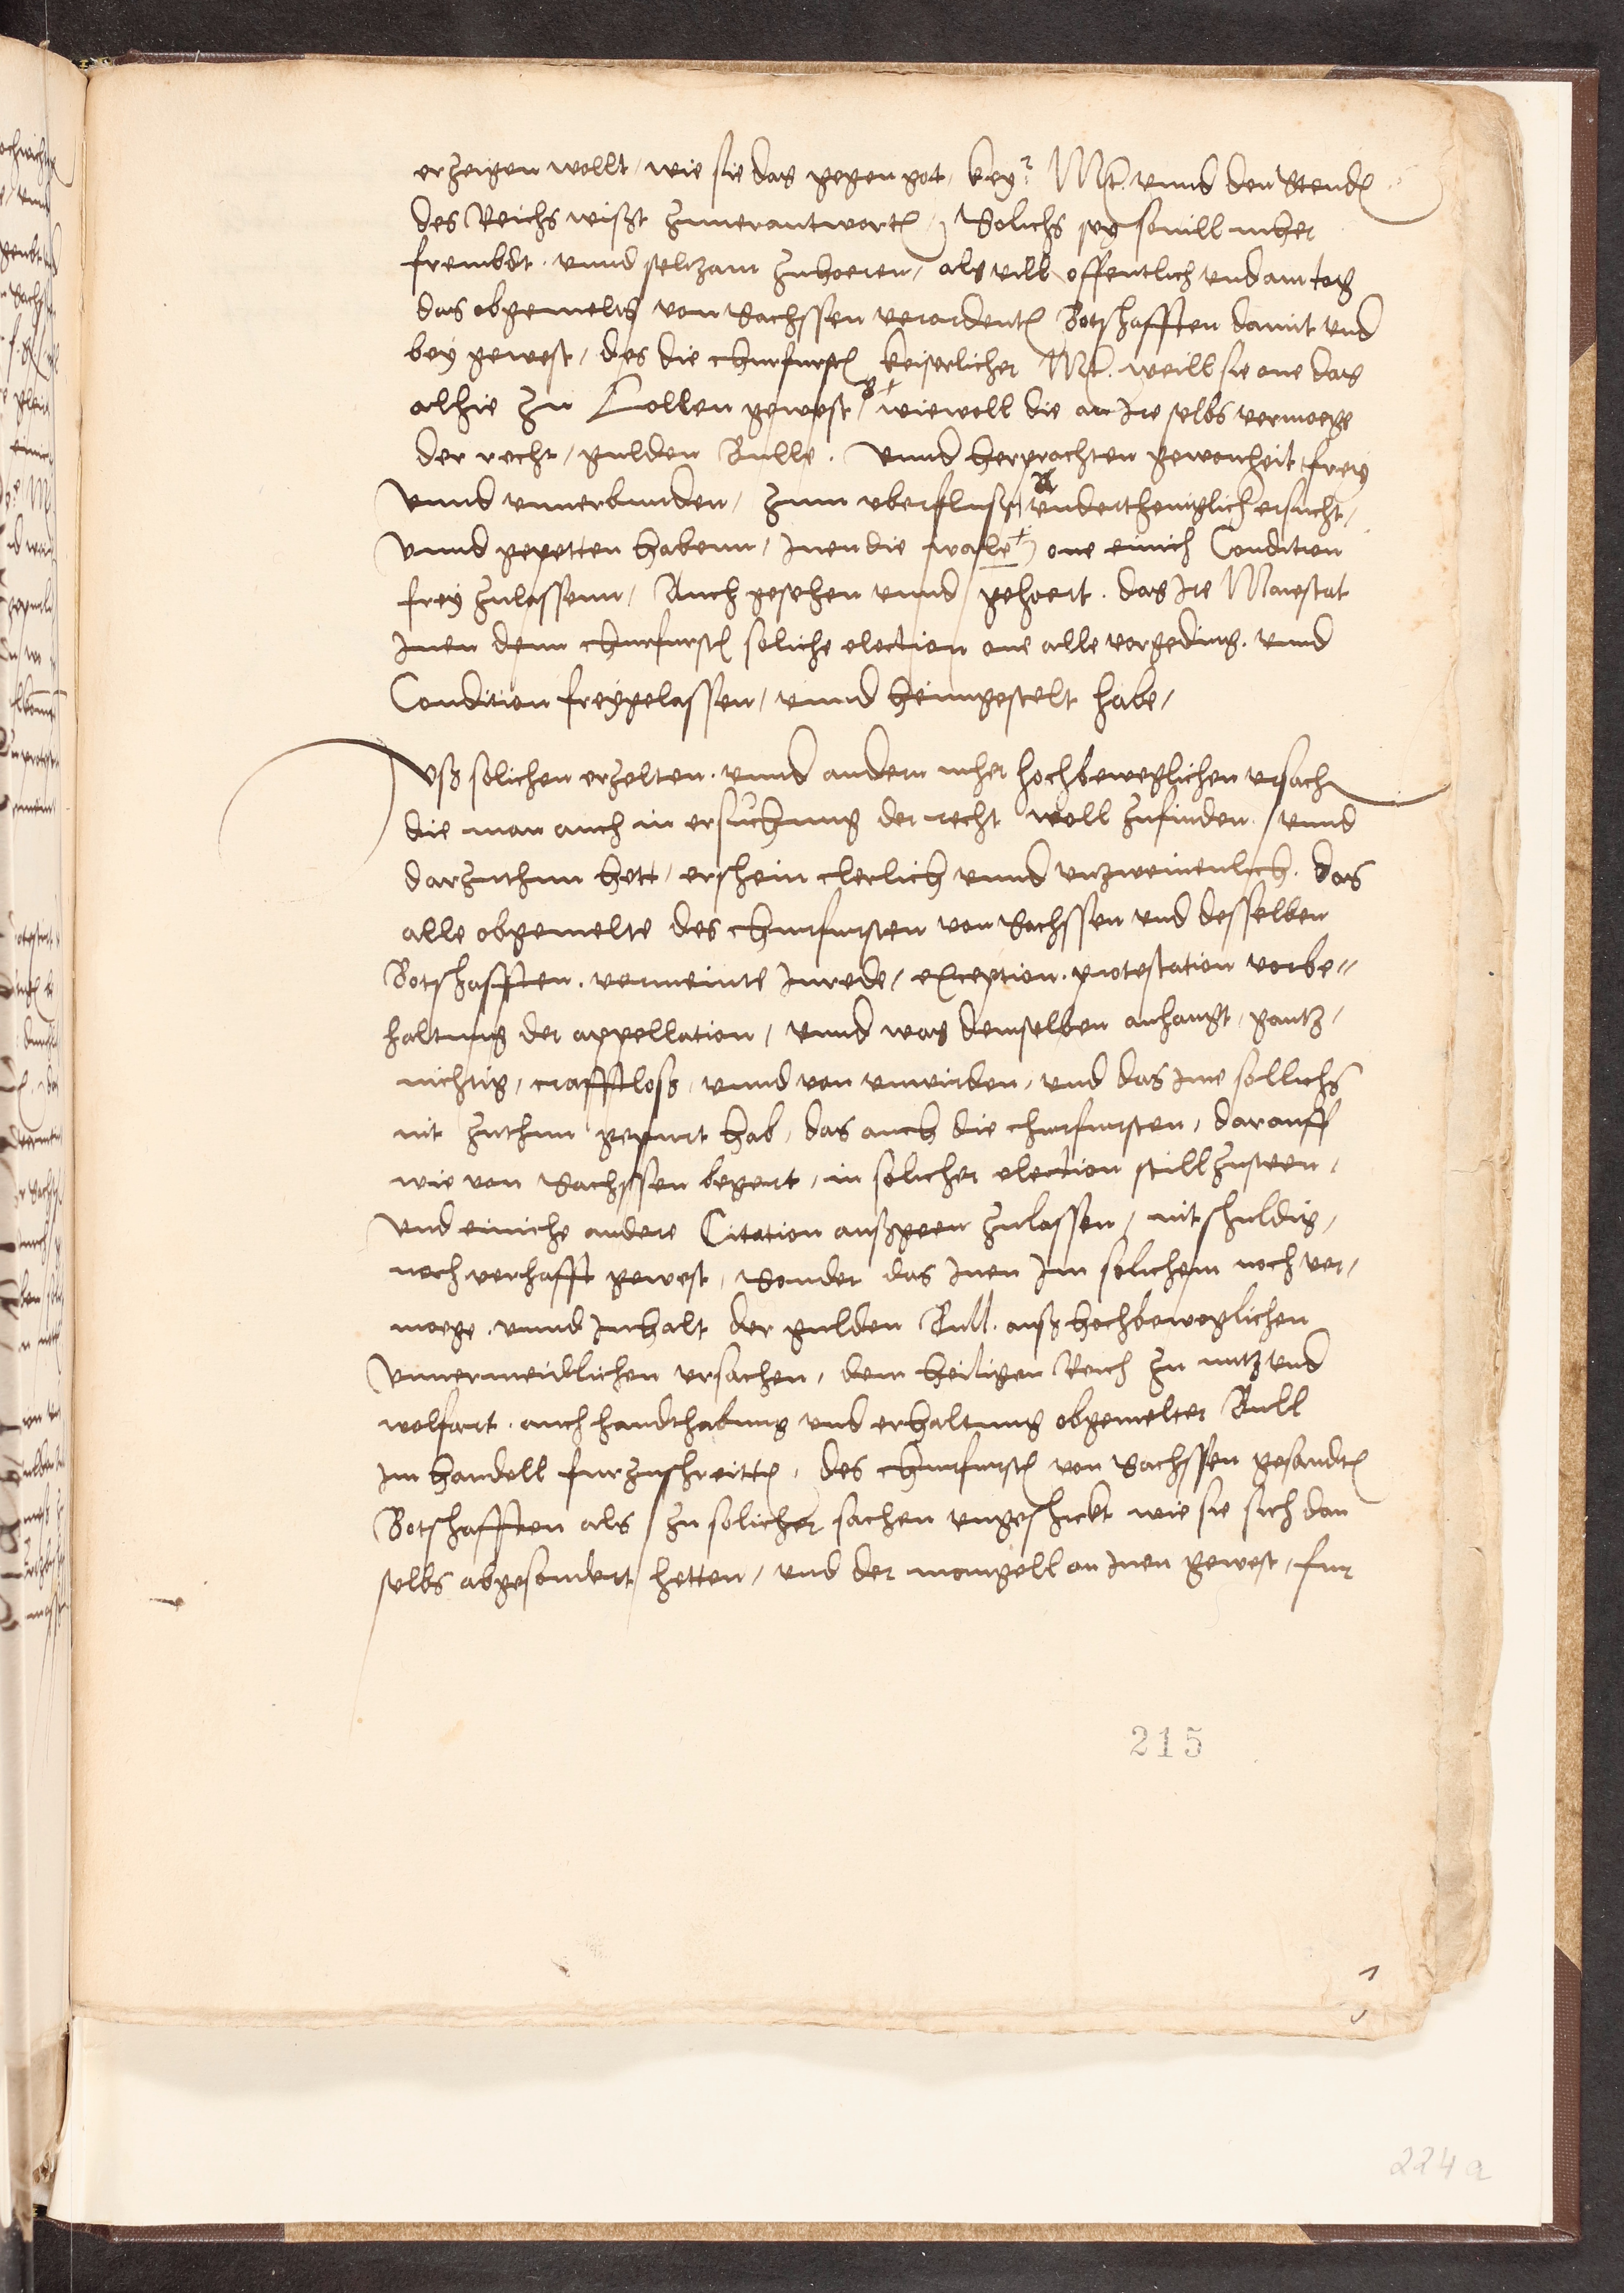 erzeigen wollt / wie sie das gegen got / key.r Mt. vnnd den Stenden
des Reichs wißt zuuerantworten / Solichs sey souill mher
frembdt . vnnd seltzam zuhoeren / als vill offentlich vnd am tag
das obgemelts von Sachssen verordenten Botschafften damit vnd
bey gewest / das die churfursten keiserlicher Mt. weill sie one das
alhie zu Collen gewest / wiewoll die an Ire selbs vermoege
der recht / gulden Bulle . vnnd herprachten gewonheit frey
vnnd vnuerbunden / zum vberfluß vnderthenigklich ersucht /
vnnd gepetten habenn / Inen die wale one einich Condition
frey zulassenn / Auch gesehen vnnd gehoert . das Ire Maiestat
Inen denn churfursten soliche election one alle vorgeding . vnnd
Condition freygelassen / vnnd heimgestelt habe /
Vß solichen erzelten . vnnd andern mher hochbeweglichen vrsach
die man auch in ersuchung der recht woll zufinden / vnnd
darzuthun hett / erschein clerlich vnnd vnzweiuenlich . das
alle obgemelte des churfursten von Sachssen vnd desselben
Botschafften . vermeinte Inrede / exception . protestation vorbe=
haltung der appellation / vnnd was demselben anhangt / gantz /
nichtig / crafftloß / vnnd von vnwirden / vnd das Ime sollichs
nit zuthun gepurt hab / das auch die churfursten / darauff
wie von Sachssen begert / in solicher election still zusteen /
vnd einiche andere Citation außgeen zulassen / nit schuldig /
noch verhafft gewest / Sonder das Inen Im solichem noch ver /
moege . vnnd Inhalt der gulden Bull . auß hochbeweglichen
vnuermeidlichen vrsachen / dem heiligen Reich zu nutz vnd
wolfart . auch handthabung vnd erhaltung obgemelter Bull
Im handell furzuschreitten / des churfursten von Sachssen gesandten
Botschafften als zu solicher sachen vngeschickt wie sie sich dan
selbs abgesondert hetten / vnd der mangell an Inen gewest / fur
215
224a